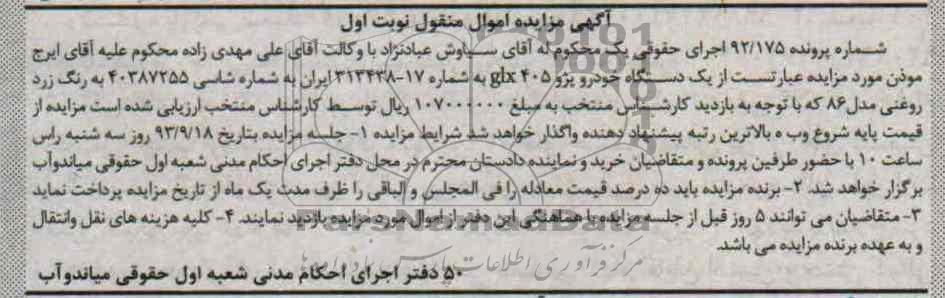 آگهی مزایده اموال منقول نوبت اول
شماره پرونده ۹۲/۱۷۵ اجرای حقوقی یک محکوم له آقای سیاوش عبادنژاد با وکالت آقای علی مهدی زاده محکوم علیه آقای ایرج
موذن مورد مزایده عبارتست از یک دستگاه خودرو پژو ۴۰۵ glx به شماره ۱۷-۳۱۳۴۳۸ ایران به شماره شاسی ۴۰۳۸۷۲۵۵ به رنگ زرد
روغنی مدل ۸۶ که با توجه به بازدید کارشناس منتخب به مبلغ ۱۰۷۰۰۰۰۰۰ ریال توسط کارشناس منتخب ارزیابی شده است مزایده از
قیمت پایه شروع وب ه بالاترین رتبه پیشنهاد دهنده واگذار خواهد شد شرایط مزایده ۱- جلسه مزایده بتاریخ ۹۳/۹/۱۸ روز سه شنبه راس
ساعت ۱۰ با حضور طرفین پرونده و متقاضیان خرید و نماینده دادستان محترم در محل دفتر اجرای احکام مدنی شعبه اول حقوقی میاندوآب
برگزار خواهد شد. ۲- برنده مزایده باید ده درصد قیمت معادله را فی المجلس و الباقی را ظرف مدت یک ماه از تاریخ مزایده پرداخت نماید
۳- متقاضیان می توانند ۵ روز قبل از جلسه مزایده با هماهنگی این دفتر از اموال مورد مزایده بازدید نمایند. ۴- کلیه هزینه های نقل وانتقال
و به عهده برنده مزایده می باشد.
۵۰ دفتر اجرای احکام مدنی شعبه اول حقوقی میاندوآب
ParsNamadData
مرکز فرآوری اطلاعات پارس نماد داده ها